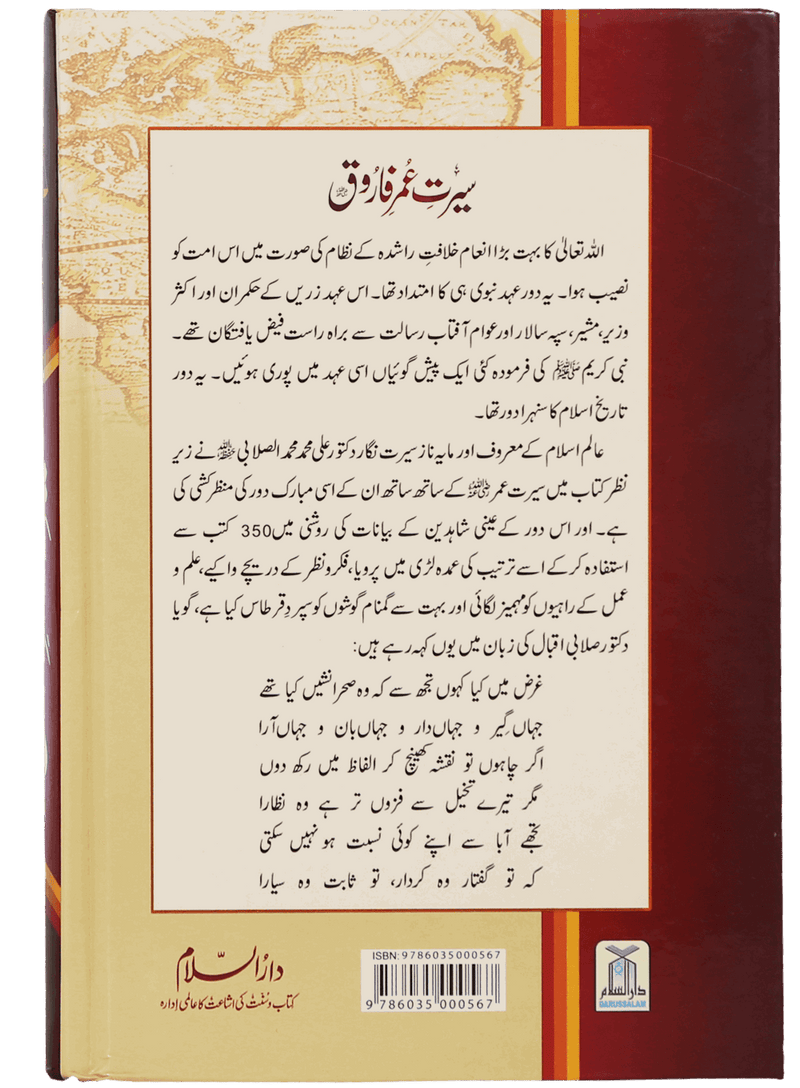 سیرتِ عُمر فارُوق رضی اللہ عنہ
اللہ تعالیٰ کا بہت بڑا انعام خلافتِ راشدہ کے نظام کی صورت میں اس امت کو
نصیب ہوا۔ یہ دور عہد نبوی ہی کا امتداد تھا۔ اس عہد زریں کے حکمران اور اکثر
وزیر، مشیر، سپہ سالار اور عوام آفتاب رسالت سے براہ راست فیض یافتگان تھے۔
نبی کریم ﷺ کی فرمودہ کئی ایک پیش گوئیاں اسی عہد میں پوری ہوئیں۔ یہ دور
تاریخ اسلام کا سنہرا دور تھا۔
عالم اسلام کے معروف اور مایہ ناز سیرت نگار دکتور علی محمد محمد الصلابی حفظہ اللہ نے زیر
نظر کتاب میں سیرت عمر رضی اللہ عنہ کے ساتھ ساتھ ان کے اسی مبارک دور کی منظر کشی کی
ہے۔ اور اس دور کے عینی شاہدین کے بیانات کی روشنی میں 350 کتب سے
استفادہ کر کے اسے ترتیب کی عمدہ لڑی میں پرویا، فکر و نظر کے دریچے وا کیے، علم و
عمل کے راہیوں کو مہمیز لگائی اور بہت سے گمنام گوشوں کو سپردِ قرطاس کیا ہے، گویا
دکتور صلابی اقبال کی زبان میں یوں کہہ رہے ہیں:
غرض میں کیا کہوں تجھ سے کہ وہ صحرا نشیں کیا تھے
جہاں گیر و جہاں دار و جہاں بان و جہاں آرا
اگر چاہوں تو نقشہ کھینچ کر الفاظ میں رکھ دوں
مگر تیرے تخیل سے فزوں تر ہے وہ نظارا
تجھے آبا سے اپنے کوئی نسبت ہو نہیں سکتی
کہ تو گفتار وہ کردار، تو ثابت وہ سیارا
دارُالسّلام
کتاب و سُنّت کی اشاعت کا عالمی ادارہ
ISBN: 9786035000567
9 786035 000567
دارالسلام
DARUSSALAM